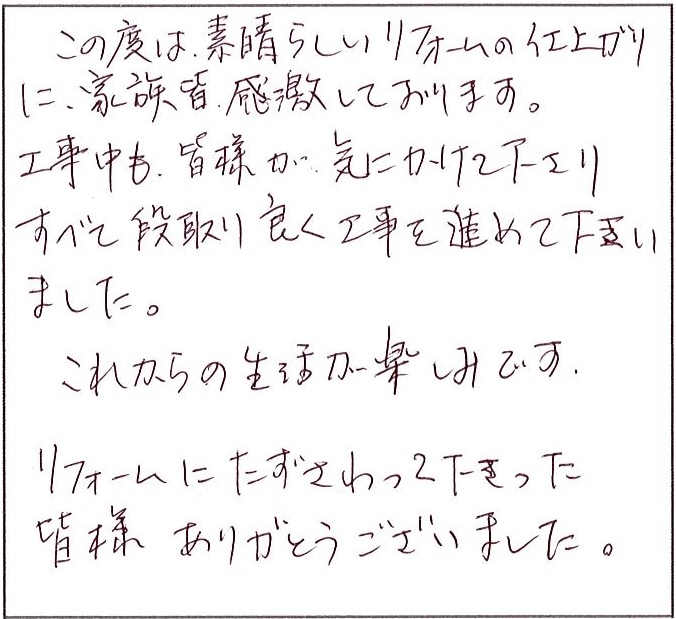 この度は、素晴らしいリフォームの仕上がり
に、家族皆、感激しております。
工事中も、皆様が、気にかけて下さり
すべて段取り良く工事を進めて下さい
ました。
これからの生活が楽しみです。
リフォームにたずさわって下さった
皆様 ありがとうございました。